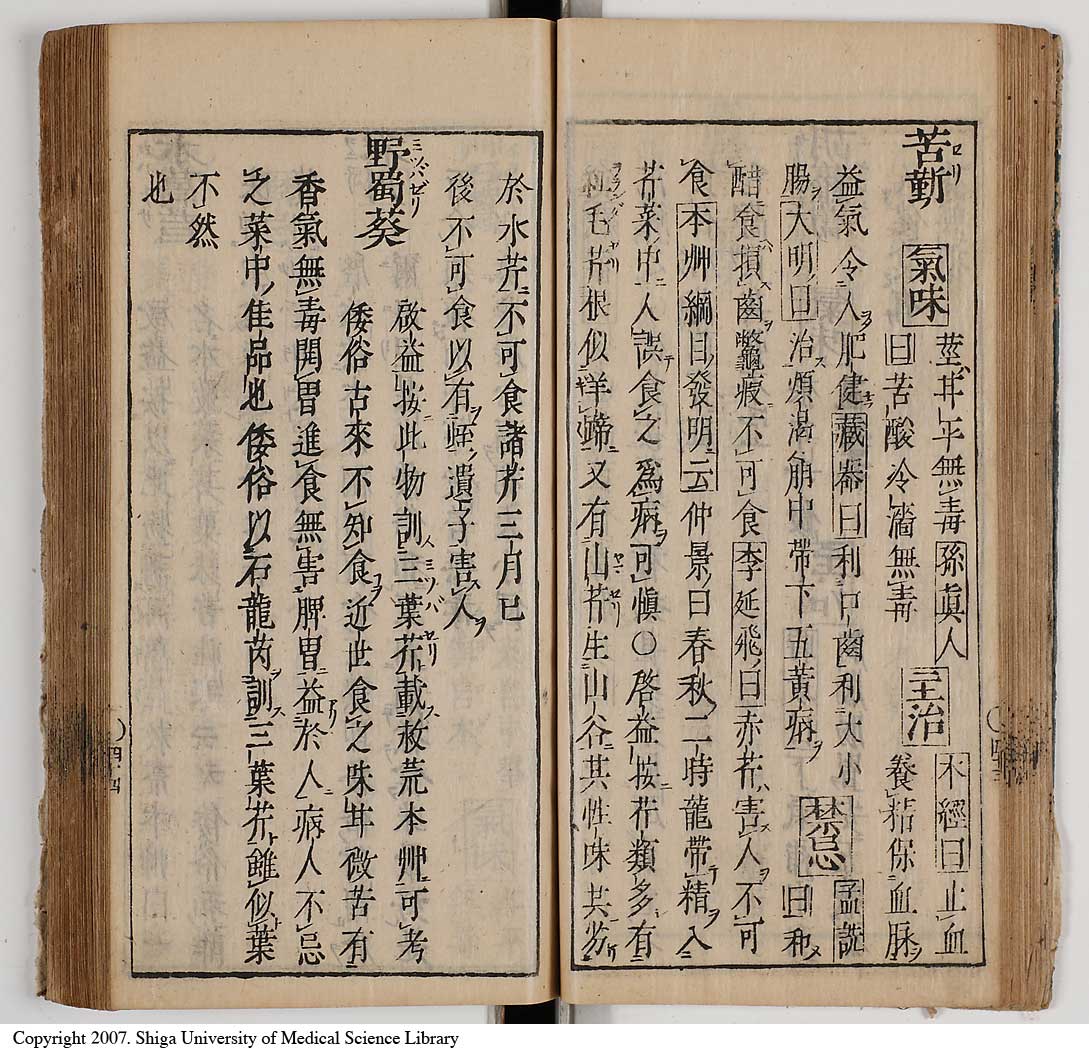 苦蘄 氣味 莖甘平無毒 孫眞人 主治 本經曰 止血
曰 苦酸冷濇無毒 養精保血脉
益氣令人肥健 藏器曰 利口齒利大小 禁忌 孟詵
腸 大明曰 治煩渴崩中帶下五黃病 曰和
醋食損齒鼈瘕不可食 李延飛曰 赤芹害人不可
食 本艸綱目發明云 仲景曰春秋二時龍帶精入
芹菜中人誤食之爲病可愼○啓益按芹類多有
紅毛芹根似羊蹄又有山芹生山谷其性味共劣
於水芹不可食諸芹三月已
後不可食以有蛭遺子害人
野蜀葵 啟益按此物訓三葉芹載救荒本艸可考
倭俗古來不知食近世食之味甘微苦有
香氣無毒開胃進食無害脾胃益於人病人不忌
之菜中佳品也倭俗以石龍芮訓三葉芹雖似葉
不然
也
四ノ四
Copyright 2007. Shiga University of Medical Science Library